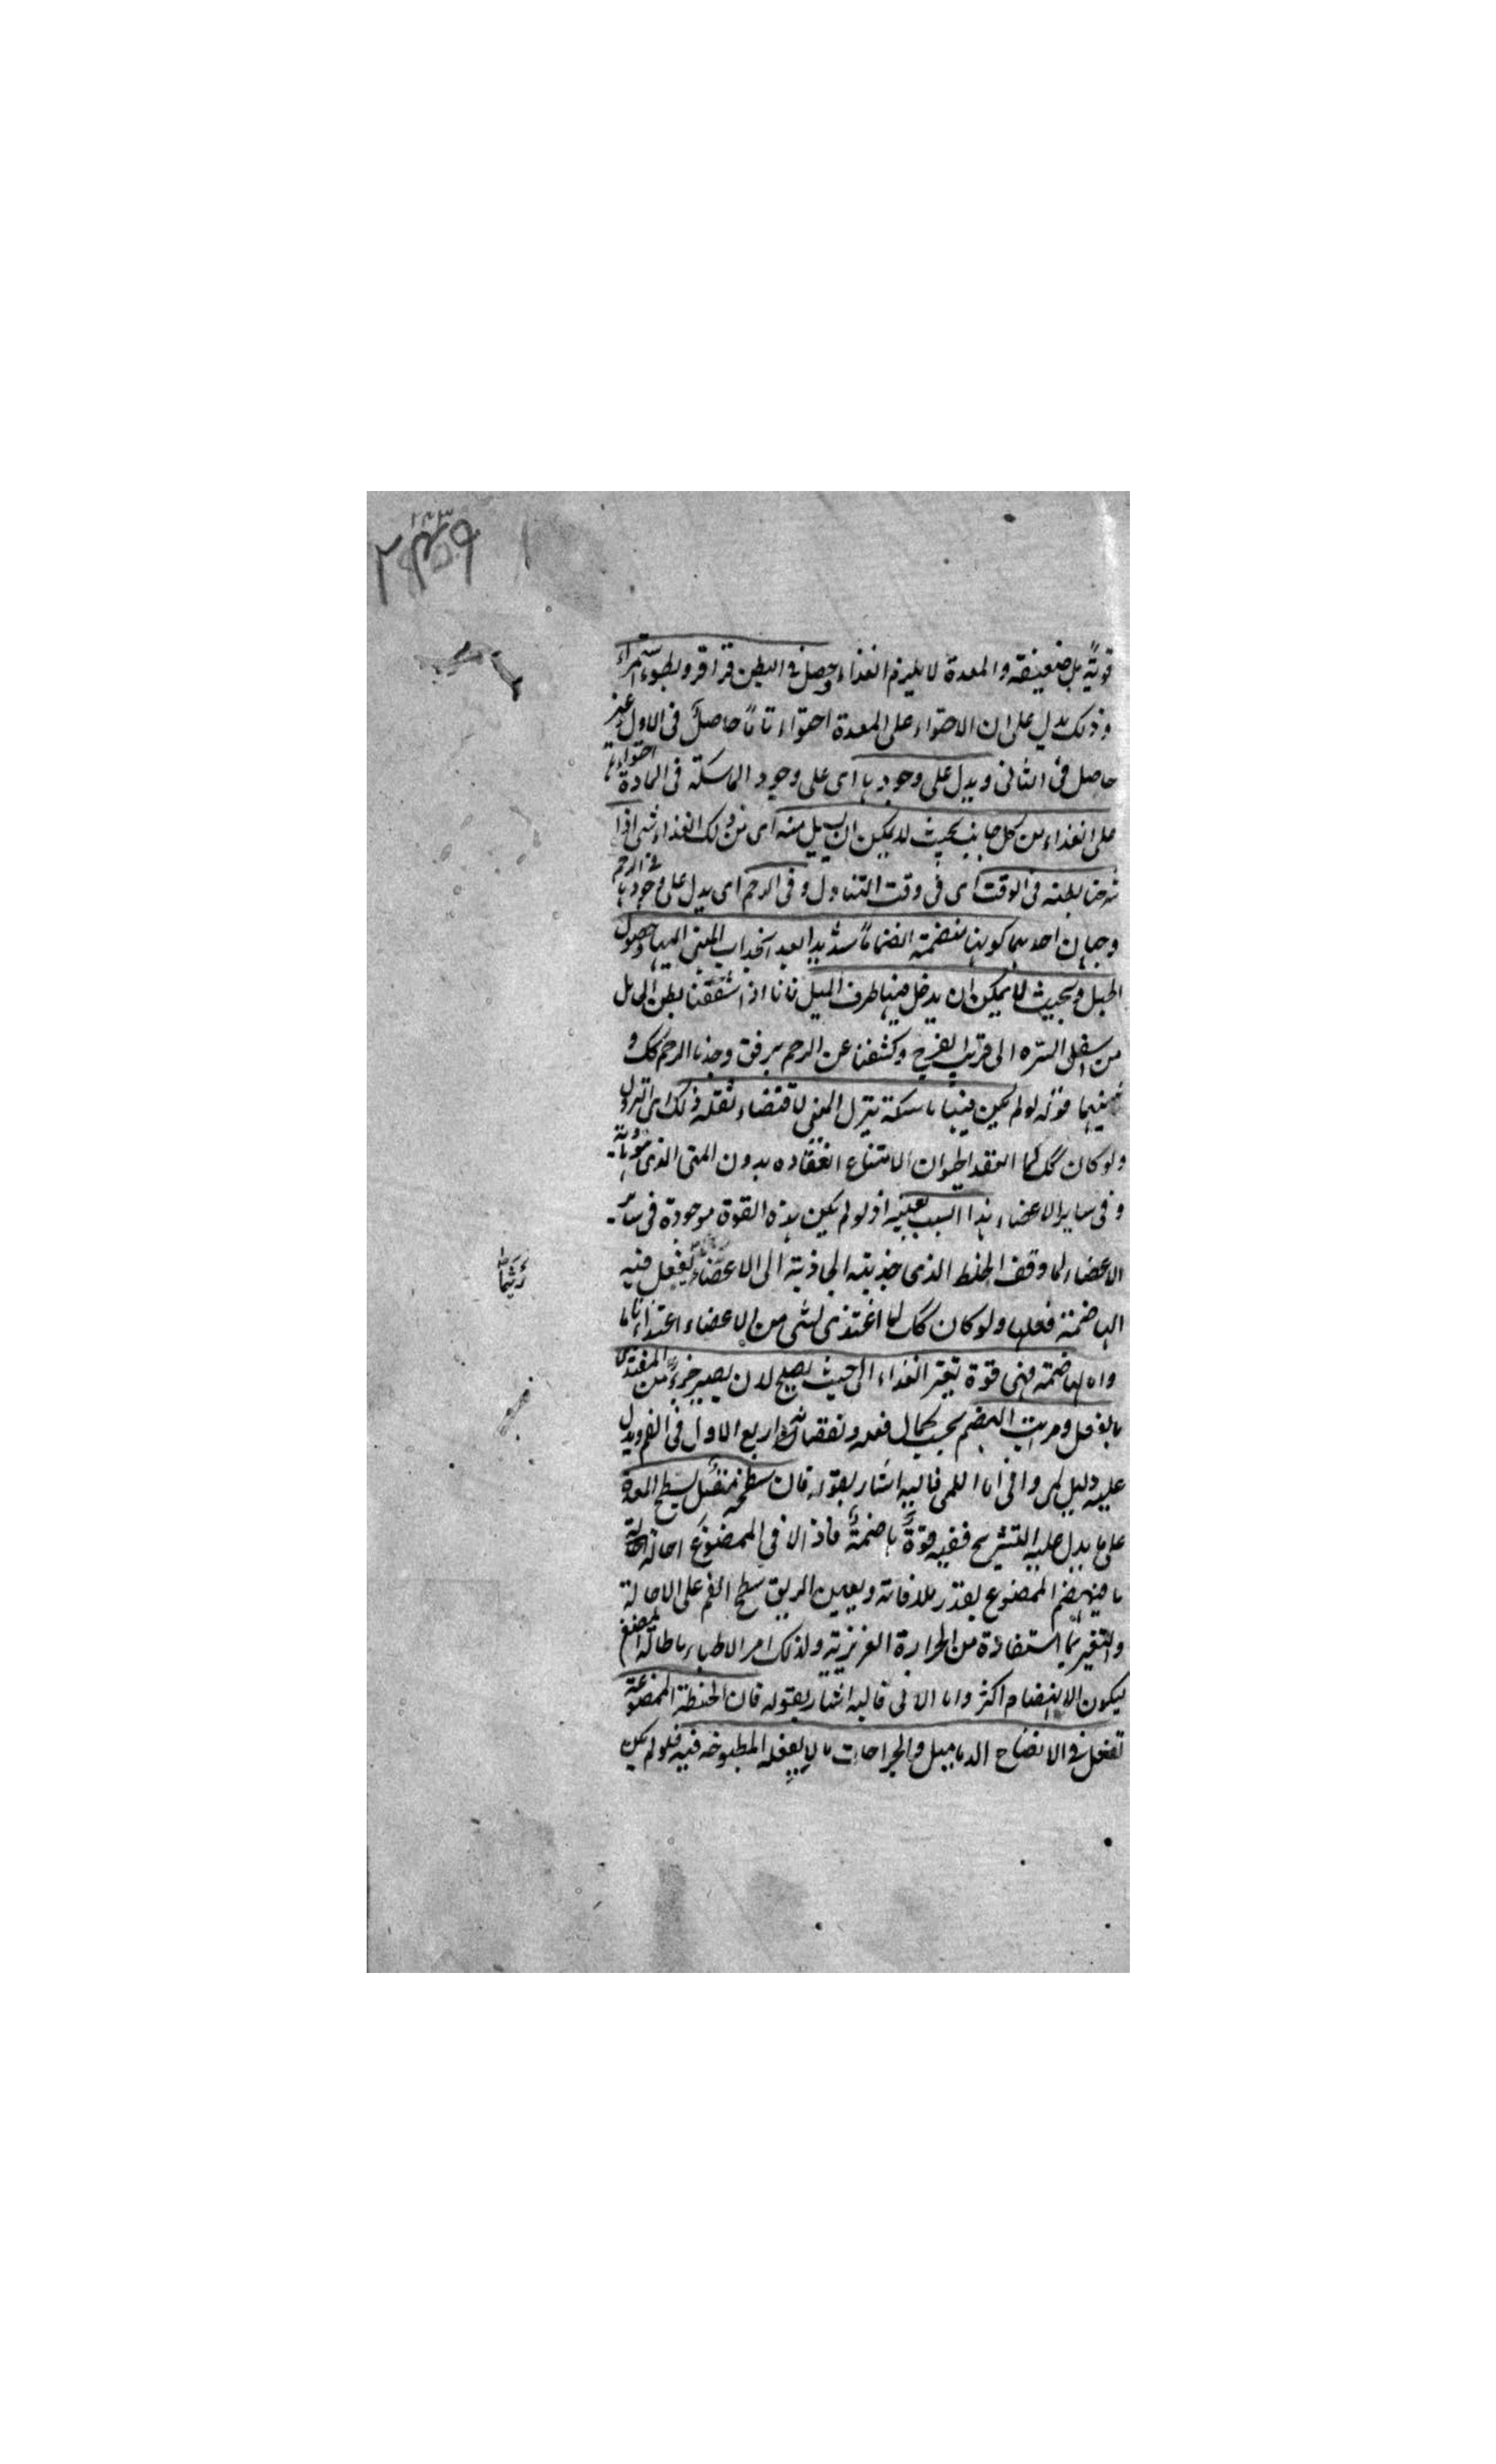 ۲۴۳
قويةً بل ضعيفة والمعدة لا يلزم الغذاء وحصل فى البطن قراقر وبطوء استمراء
وذلك يدل على ان الاحتواء على المعدة احتواء تاماً حاصلٌ فى الاول غير
حاصل فى الثانى ويدل على وجودها اى على وجود الماسكة فى المادة احتواءها
على الغذاء من كل جانب بحيث لا يمكن ان يسيل منه اى من ذلك الغذاء شى اذا
شرحنا بطنه فى الوقت اى فى وقت التناول وفى الرحم اى يدل على وجودها فى الرحم
وجهان احدهما كونها منضمة انضماماً شديداً بعد انجذاب المنى اليها وحصول
الحبل وبحيث لا يمكن ان يدخل فيها طرف الميل فانا اذا شققنا بطن الحامل
من اسفل السره الى قريب الفرج وكشفنا عن الرحم برفق وجدنا الرحم كك و
ثانيهما قوله لو لم يكن فيها ماسكة نزل المنى لاقتضاء ثقله ذلك اى النزول
ولو كان كك لما انعقد الحيوان لامتناع انعقاده بدون المنى الذى هو مادته
وفى ساير الاعضاء هذا السبب بعينه اذ لو لم يكن هذه القوة موجودة فى ساير
الاعضاء لما وقف الخلط الذى جذبته الجاذبة الى الاعضاء ليفعل فيه
الهاضمة فعلها ولو كان كك لما اغتذى شى من الاعضاء اغتذاء تاما
واما الهاضمة فهى قوة تغير الغذاء الى حيث يصلح لان يصير جزءً من المغتذى
بالفعل ومراتب الهضم بحسب كمال فعله ونقصانه اربع الاول فى الفم ويدل
عليه دليل لمى وانى اما اللمى فاليه اشار بقوله فان سطحه متصل بسطح المعدة
على ما يدل عليه التشريح ففيه قوة هاضمة فاذا لاقى الممضوغ احاله احالة
ما فينهضم الممضوغ بقدر ملاقاته ويعين الريق سطح الفم على الاحالة
والتغير بما استفادة من الحرارة الغريزية ولذلك امر الاطباء باطالة المضغ
ليكون الانهضام اكثر واما الانى فاليه اشار بقوله فان الحنطة الممضوغة
تفعل فى الانضاج الدماميل والجراحات ما لا يفعله المطبوخه فيه فلو لم يكن